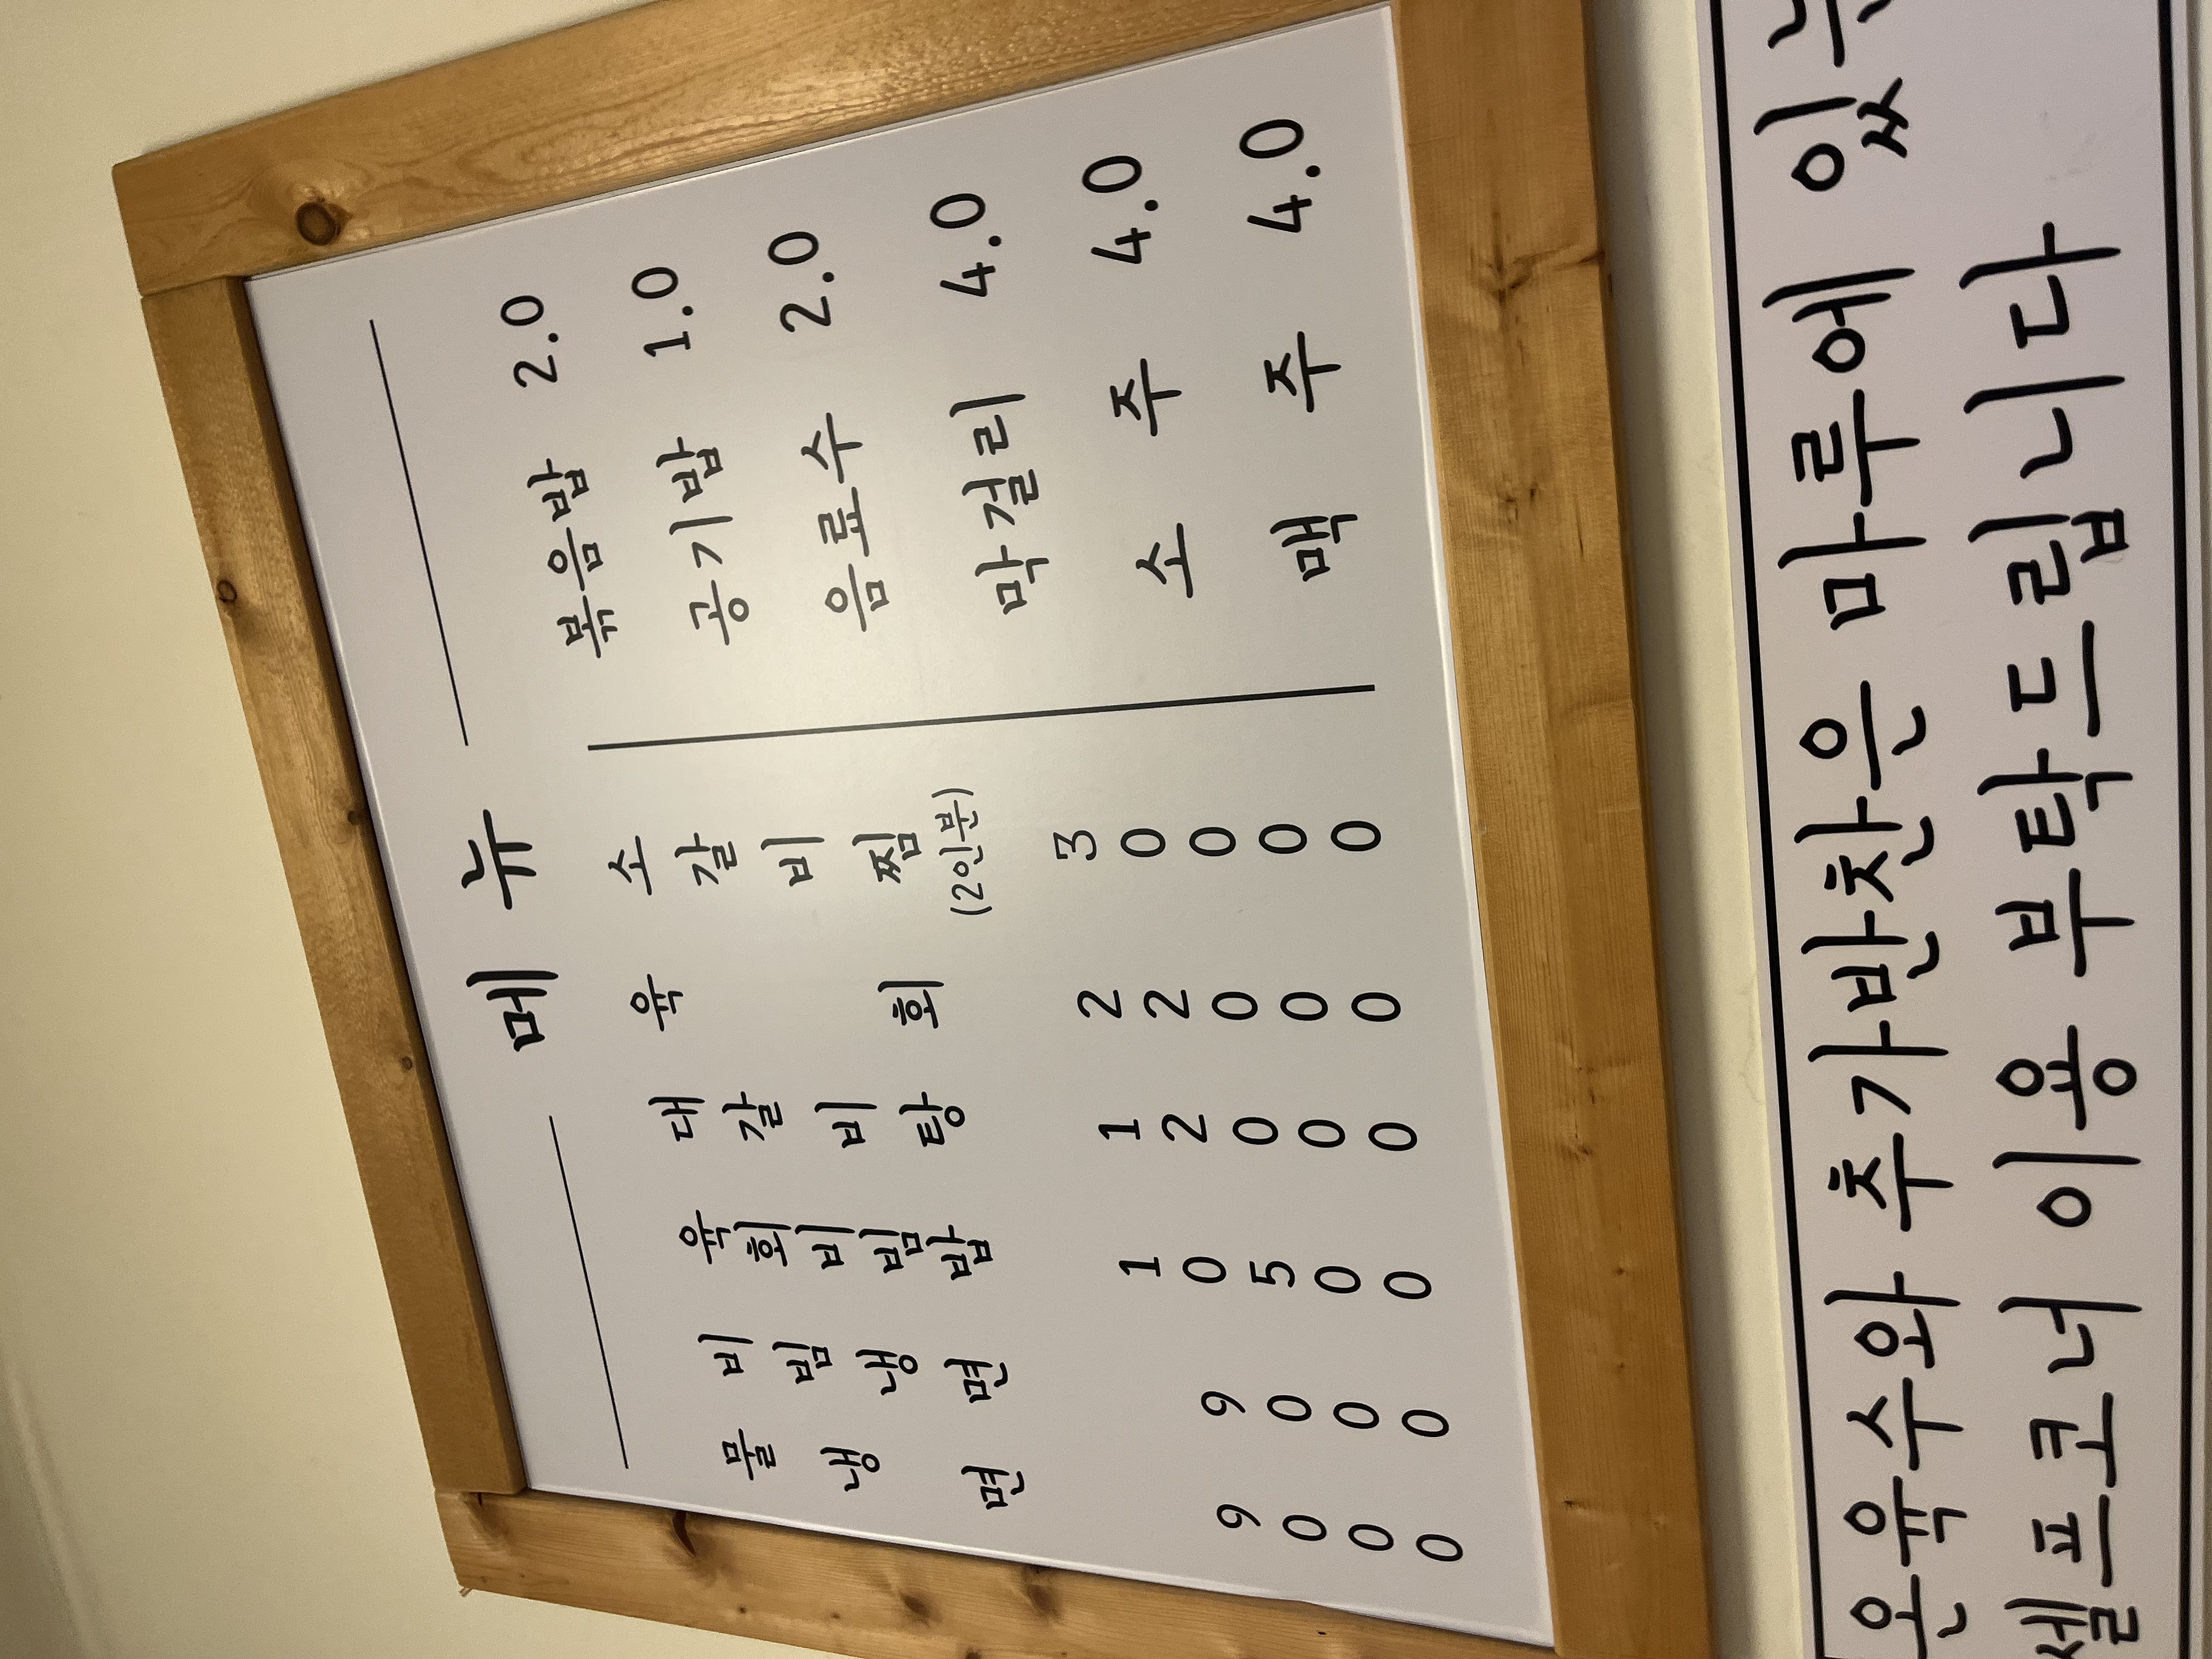 메뉴
물냉면 9000
비빔냉면 9000
육회비빔밥 10500
대갈비탕 12000
육회 22000
소갈비찜 (2인분) 30000
볶음밥 2.0
공기밥 1.0
음료수 2.0
막걸리 4.0
소주 4.0
맥주 4.0
온육수와 추가반찬은 마루에 있
셀프코너 이용 부탁드립니다